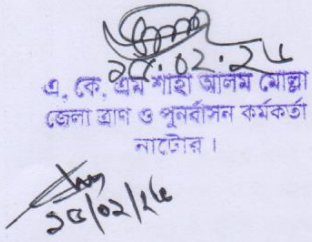 ২৫.০২.২৫
এ, কে, এম শাহা আলম মোল্লা
জেলা ত্রাণ ও পুনর্বাসন কর্মকর্তা
নাটোর।
২৫/০২/২৫